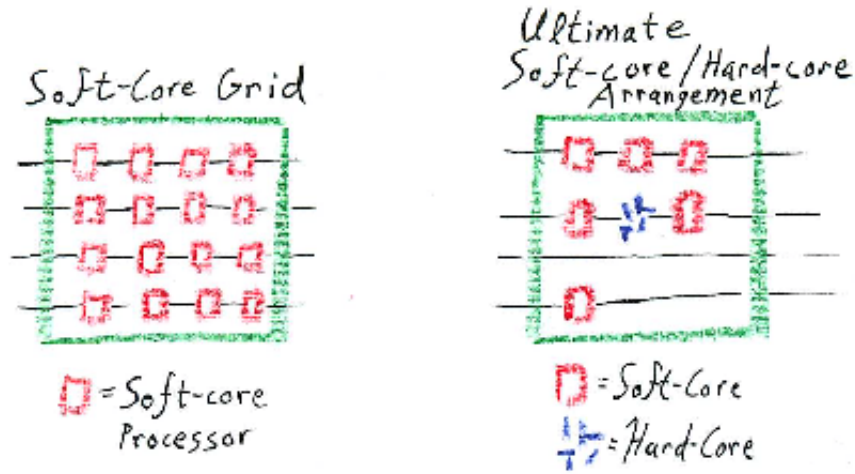 Soft-Core Grid
= Soft-core
Processor
Ultimate
Soft-core/Hard-core
Arrangement
= Soft-Core
= Hard-Core